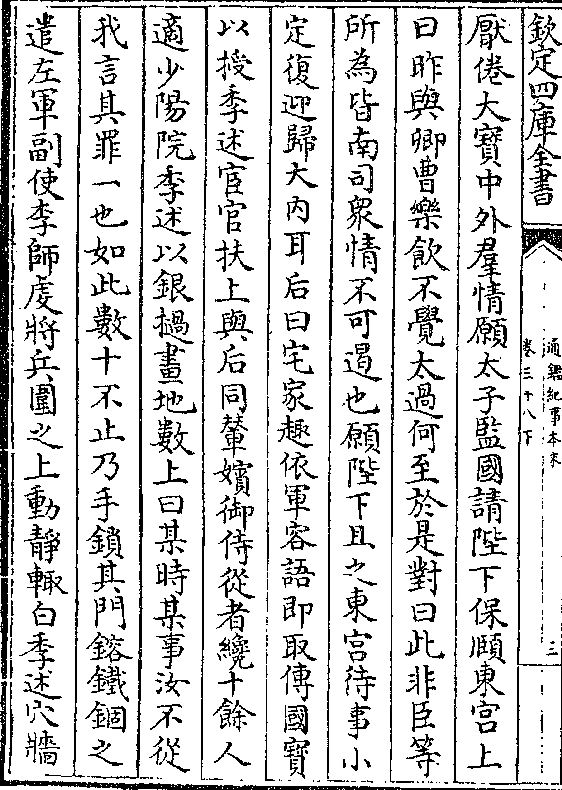 欽定四庫全書
通鑑紀事本末
卷三十八下
三
厭倦大寶中外羣情願太子監國請陛下保頤東宮上
曰昨與卿曹樂飲不覺太過何至於是對曰此非臣等
所為皆南司衆情不可遏也願陛下且之東宮待事小
定復迎歸大内耳后曰宅家趣依軍容語即取傳國寶
以授季述宦官扶上與后同輦嬪御侍從者纔十餘人
適少陽院季述以銀撾畫地數上曰某時某事汝不從
我言其罪一也如此數十不止乃手鎖其門鎔鐵錮之
遣左軍副使李師虔將兵圍之上動靜輙白季述穴牆